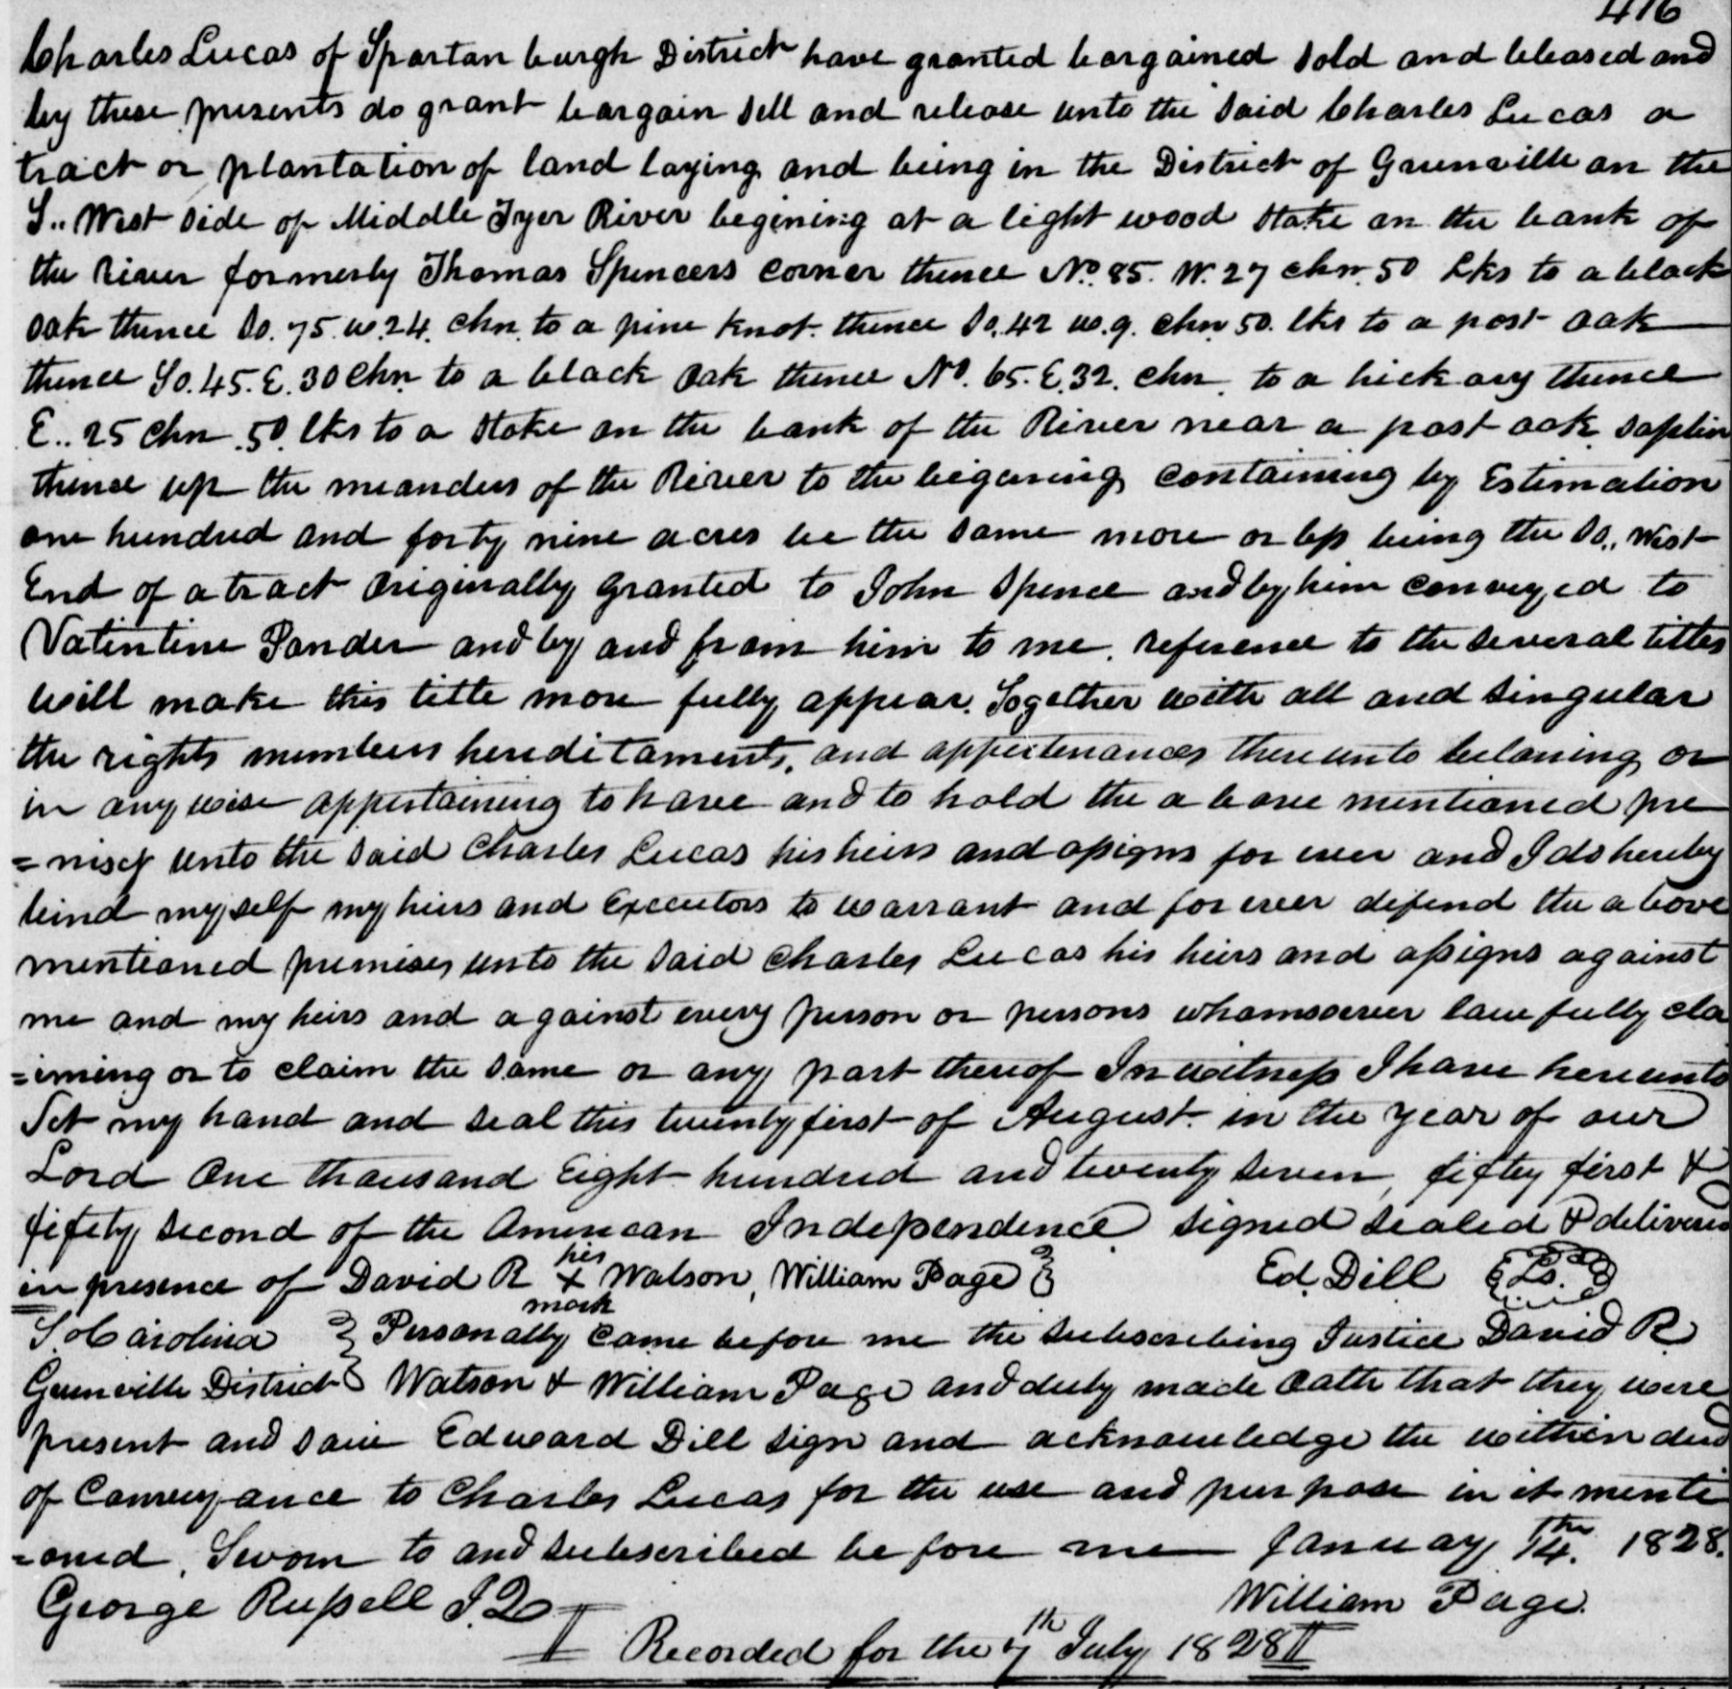 416
Charles Lucas of Spartanburgh District have granted bargained sold and eleased and
by these presents do grant bargain sell and release unto the said Charles Lucas a
tract or plantation of land laying and being in the District of Greenville on the
S.. West side of Middle Tyer River begining at a light wood stake on the bank of
the river formerly Thomas Spencers corner thence No. 85. W. 27 chn. 50 lks to a black
oak thence So. 75. w. 24. chn. to a pine knot. thence So. 42 w. 9. chn 50. lks to a post oak
thence So. 45. E. 30 Chn to a black oak thence No. 65. E. 32. chn. to a hickory thence
E.. 25 chn. 50 lks to a stake on the bank of the River near a post oak saplin
thence up the meanders of the River to the begining containing by Estimation
one hundred and forty nine acres be the same more or less being the So.. West
End of a tract originally granted to John Spence and by him conveyed to
Valentine Sander and by and from him to me. reference to the several titles
will make this title more fully appear. Together with all and singular
the rights members hereditaments, and appertenances thereunto beloning or
in any wise appertaining to have and to hold the above mentioned pre
=mises unto the said Charles Lucas his heirs and assigns for ever and I do hereby
bind myself my heirs and Executors to warrant and forever defend the above
mentioned premises unto the said Charles Lucas his heirs and assigns against
me and my heirs and against every person or persons whomsoever lawfully cla
=iming or to claim the same or any part thereof In witness I have hereunto
Set my hand and seal this twenty first of August in the year of our
Lord One thousand Eight hundred and twenty seven, fifty first &
fifety second of the American Independence signed sealed & delivered
in presence of David R his x mark Watson, William Page } Ed. Dill (LS.)
So Carolina } Personally came before me the subscribing Justice David R
Greenville District } Watson & William Page and duly made oath that they were
present and saw Edward Dill sign and acknowledge the within deed
of Conveyance to Charles Lucas for the use and purpose in it menti
=oned, Sworn to and subscribed before me January 14th. 1828.
George Russell J.Q William Page.
Recorded for the 7th July 1828